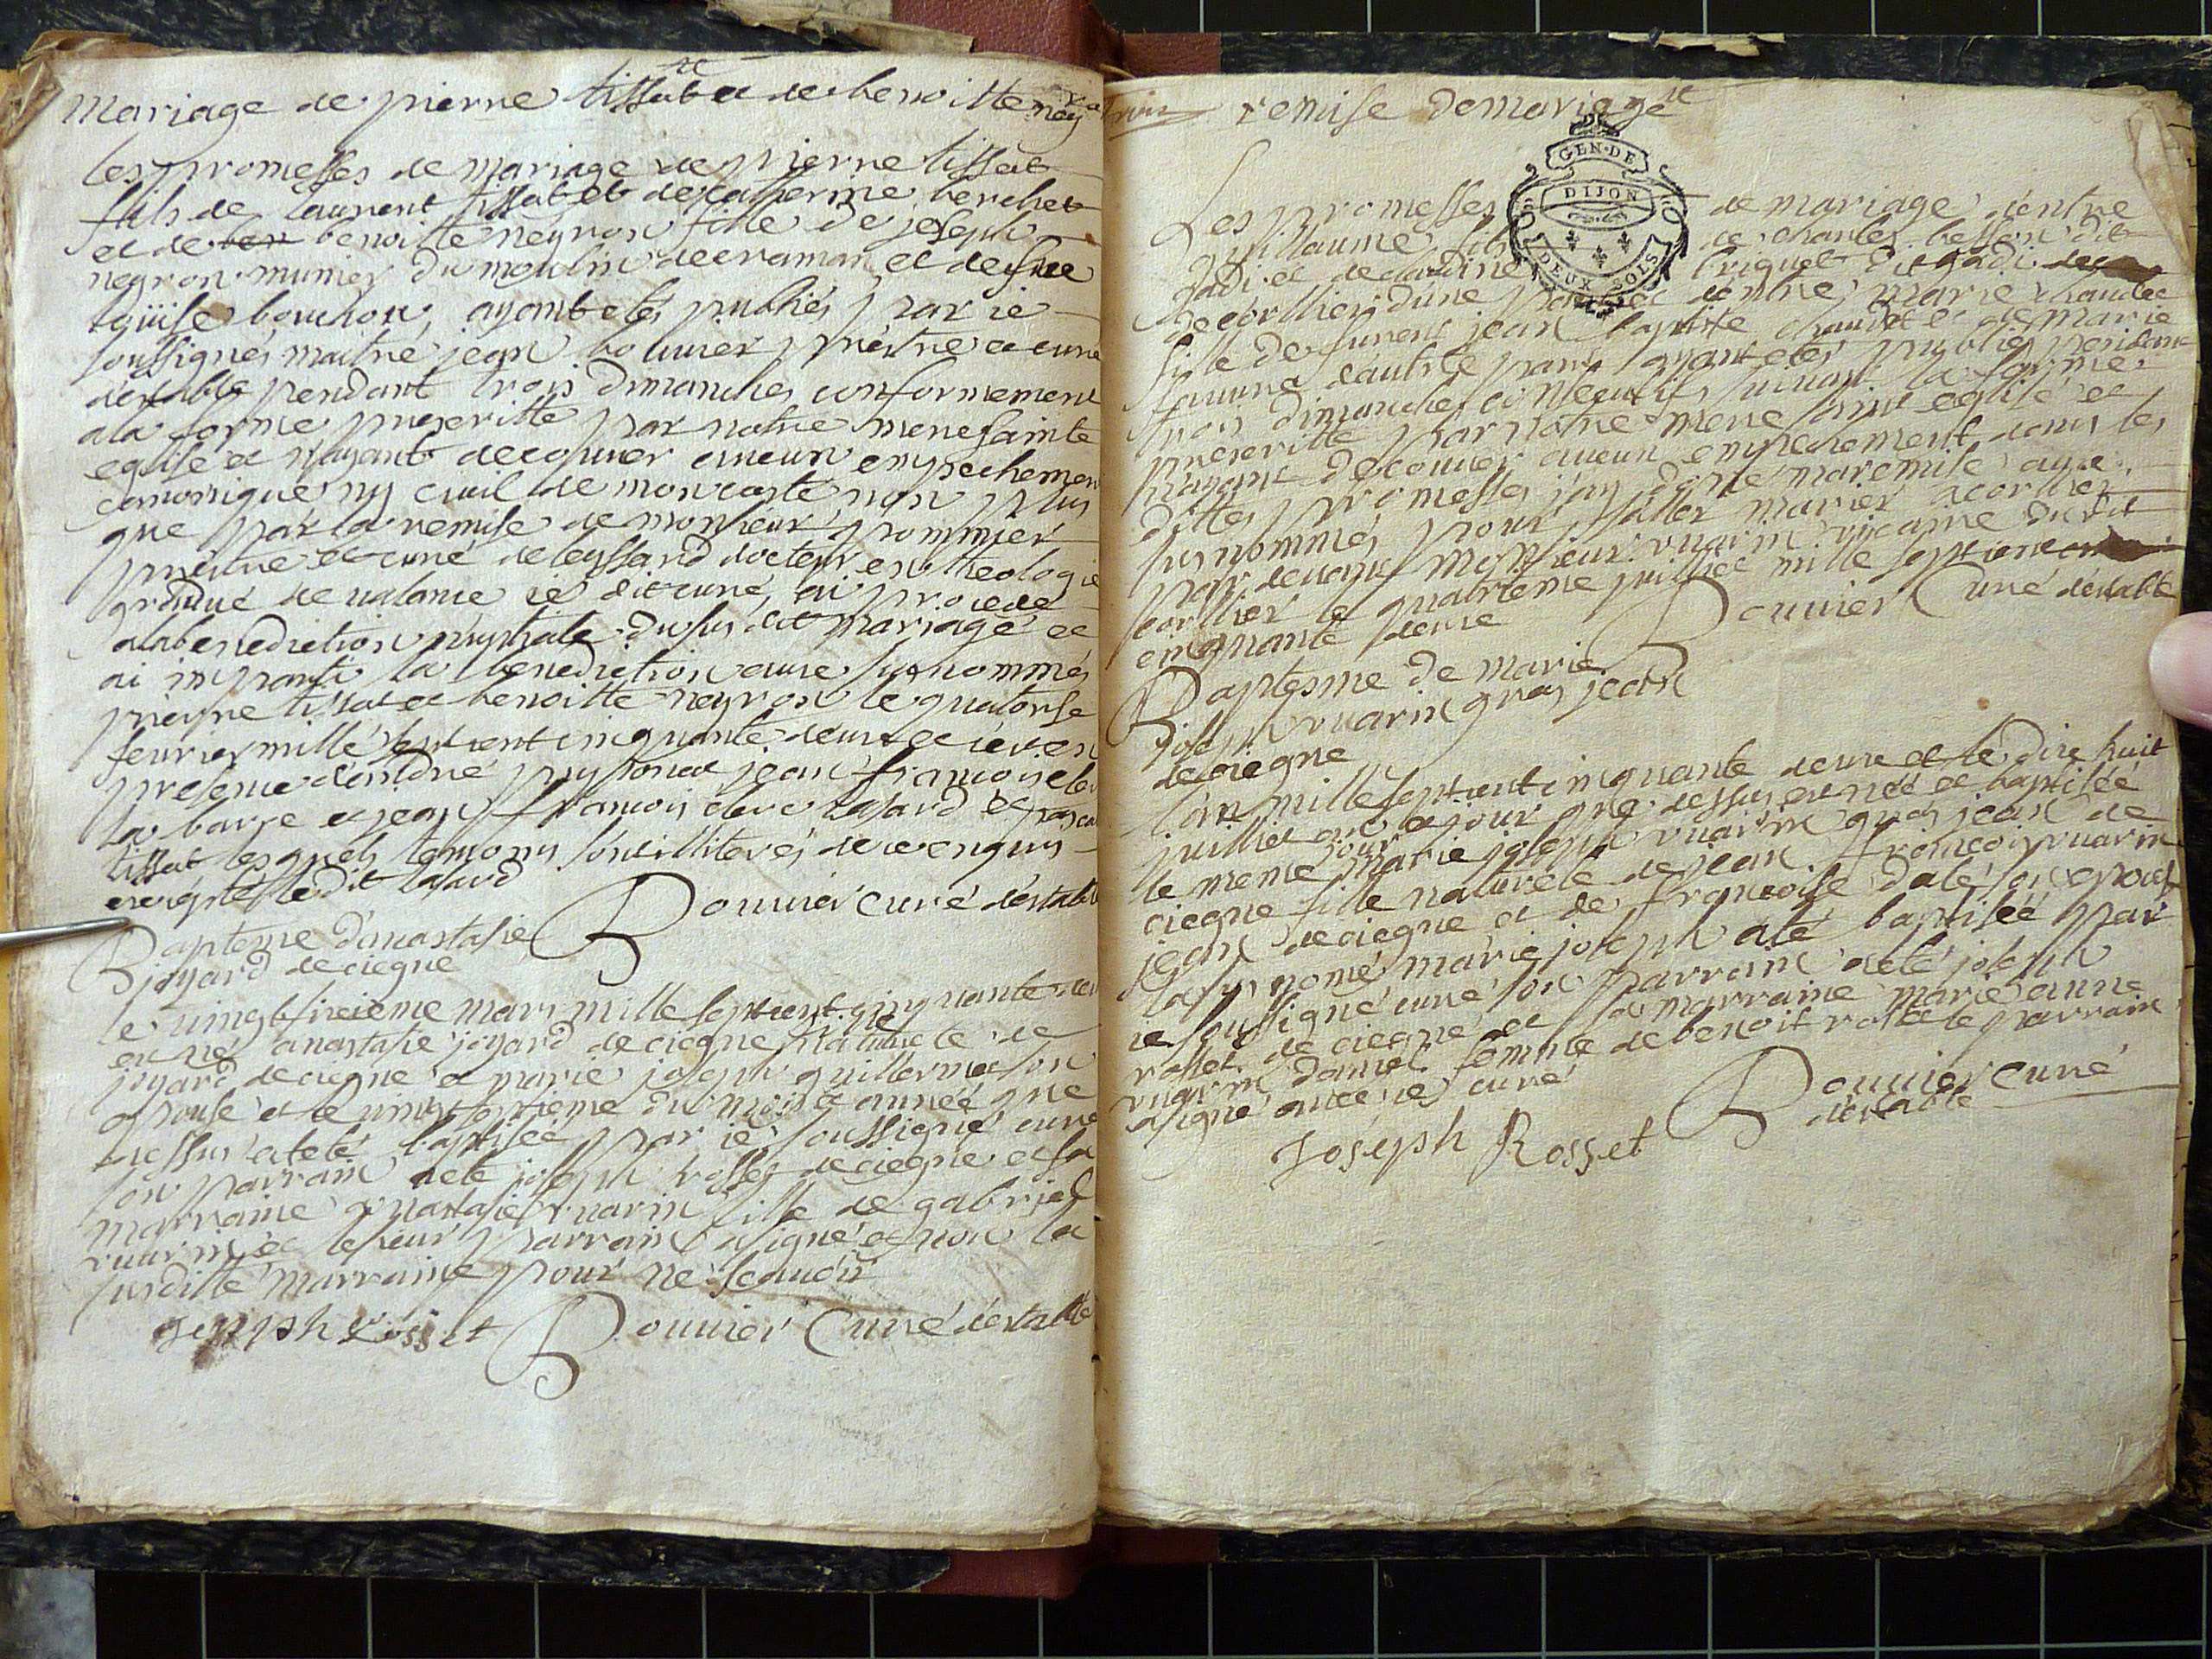 Mariage de pierre tissat et de benoitte ney
les promesses de mariage de pierre tissat
fils de laurent tissat et de catherine berchet
et de ben benoitte neyron fille de joseph
neyron munier du moulin de craman et de fue
loüise bouchon, ayant etés publiés par ie
soussignés maitre jean bouuier prêtre et curé
destable pendant trois dimanches conformement
a la forme prescritte par notre mere sainte
eglise et n'ayant decouuer aucun empechement
canonique ny ciuil de mon costé non plus
que par la remise de monsieur pommier
prêtre et curé de leyssard docteur en theologie
gradué de ualance ie dit curé ai procedé
a la benediction nuptiale du sus dit mariage et
ai imparti la benediction aux sus nommés
pierre tissat et benoitte neyron le quatorse
feurier mille sept cent cinquante deux et ce en
presence d'andré jean françois
la barre et jean françois cler lasard et
tissat lesquels temoins sont illiterés de ce enquis
excepté ledit lasard
Bouuier curé destable
Bapteme d'anastasie
joyard de ciegne
le uingt sixieme mars mille sept cent cinquante deux
est né anastasie joyard de ciegne naturele de
joyard de ciegne et marie joseph guillermet son
epouse et le uingt septieme du mois et année que
dessus a eté baptisée par ie soussigné curé
son parrain a eté joseph rosset de ciegne et sa
marraine anastasie ruarin fille de gabriel
ruarin et le sieur parrain a signé et non la
susditte marraine pour ne scauoir
joseph Rosset Bouuier Curé destable
remise de mariage
GEN·DE
DIJON
DEUX SOLS
Les promesses de mariage d'entre
guillaume fils de charles besson dit
gadi et de claudine briguet dit gadi
de corlier d'une part et d'entre marie chaudet
fille de furent jean baptiste chaudet et de marie
d'autre part ayant etés publiés pendant
trois dimanches consecutifs suiuant la forme
prescritte par notre mere sainte eglise et
n'ayant decouuer aucun empechement dans les
dittes promesses j'ay doné ma remise aux
sus nommés pour s'aller marier a corlier
par deuant Monsieur ruarin uicaire du dit
corlier le quatrieme juillet mille sept cent
cinquante deux Bouuier Curé destable
Baptesme de marie
joseph ruarin gros jean
de ciegne
l'an mille sept cent cinquante deux et le dix huit
juillet et a jour que dessus est née et baptisée
le meme jour marie joseph ruarin gros jean de
ciegne fille naturele de jean françois ruarin
jean de ciegne et de françoise dalé son epouse
la sus nomé marie joseph a eté baptisée par
ie soussigné curé son parrain a eté joseph
rosset de ciegne et sa marraine marie anne
ruarin damet femme de benoit rosset le parrain
a signé auec ie curé
Bouuier curé
destable
Joseph Rosset